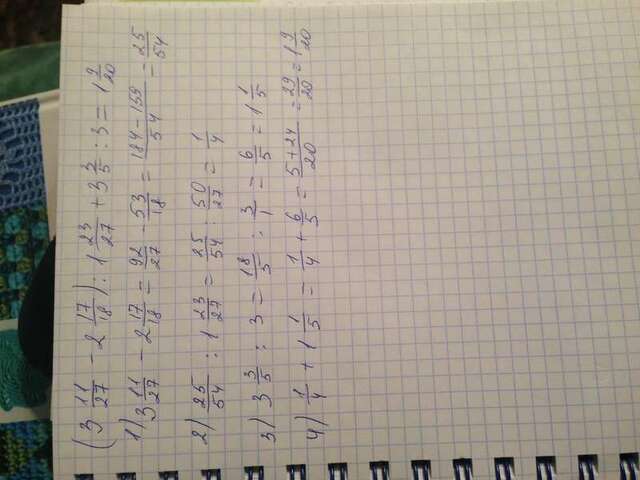 (3 11/27 - 2 17/18) : 1 23/27 + 3 3/5 : 3 = 1 9/20
1) 3 11/27 - 2 17/18 = 92/27 - 53/18 = (184-159)/54 = 25/54
2) 25/54 : 1 23/27 = 25/54 : 50/27 = 1/4
3) 3 3/5 : 3 = 18/5 : 3/1 = 6/5 = 1 1/5
4) 1/4 + 1 1/5 = 1/4 + 6/5 = (5+24)/20 = 29/20 = 1 9/20